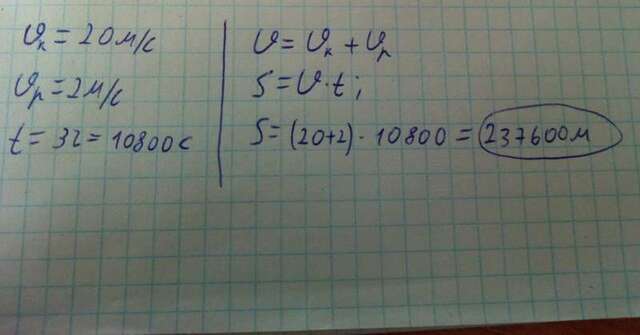 υк = 20 м/с
υр = 2 м/с
t = 3ч = 10800 с
υ = υк + υр
S = υ · t ;
S = (20+2) · 10800 = 237600 м